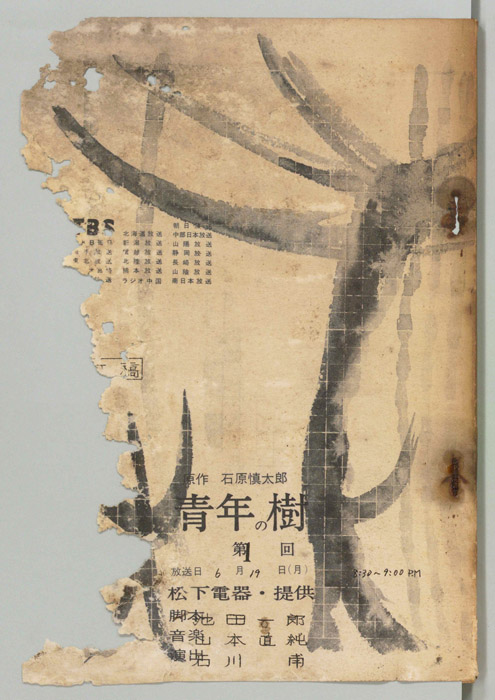 TBS
朝日放送
北海道放送 中部日本放送
新潟放送 山陽放送
静岡放送
北陸放送 長崎放送
熊本放送 山陰放送
ラジオ中国 南日本放送
稿
原作 石原慎太郎
青年の樹
第1回
放送日 6月19日(月) 8:30~9:00 P.M
松下電器・提供
脚本 池田一郎
音楽 山本直純
演出 古川甫